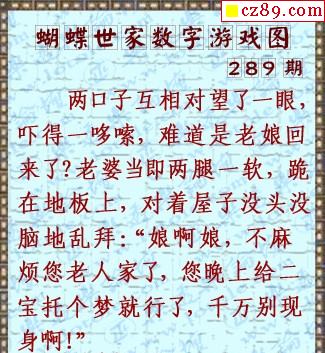 cz89.com
蝴蝶世家数字游戏图
289期
两口子互相对望了一眼,
吓得一哆嗦，难道是老娘回
来了?老婆当即两腿一软，跪
在地板上，对着屋子没头没
脑地乱拜:“娘啊娘，不麻
烦您老人家了，您晚上给二
宝托个梦就行了，千万别现
身啊!”